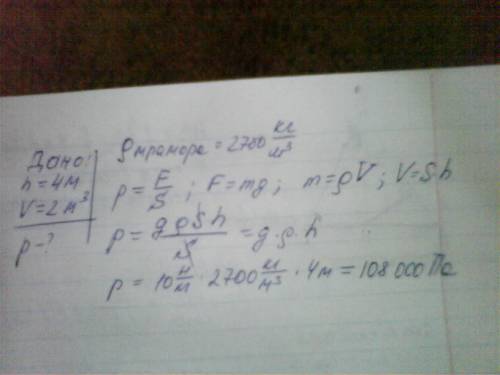 Дано:
h = 4м
V = 2 м³
p - ?
ρ мрамора = 2700 кг/м³
p = F/S ; F = mg ; m = ρV ; V = Sh
p = gρSh/S = g·ρ·h
p = 10 н/м · 2700 кг/м³ · 4 м = 108 000 Па